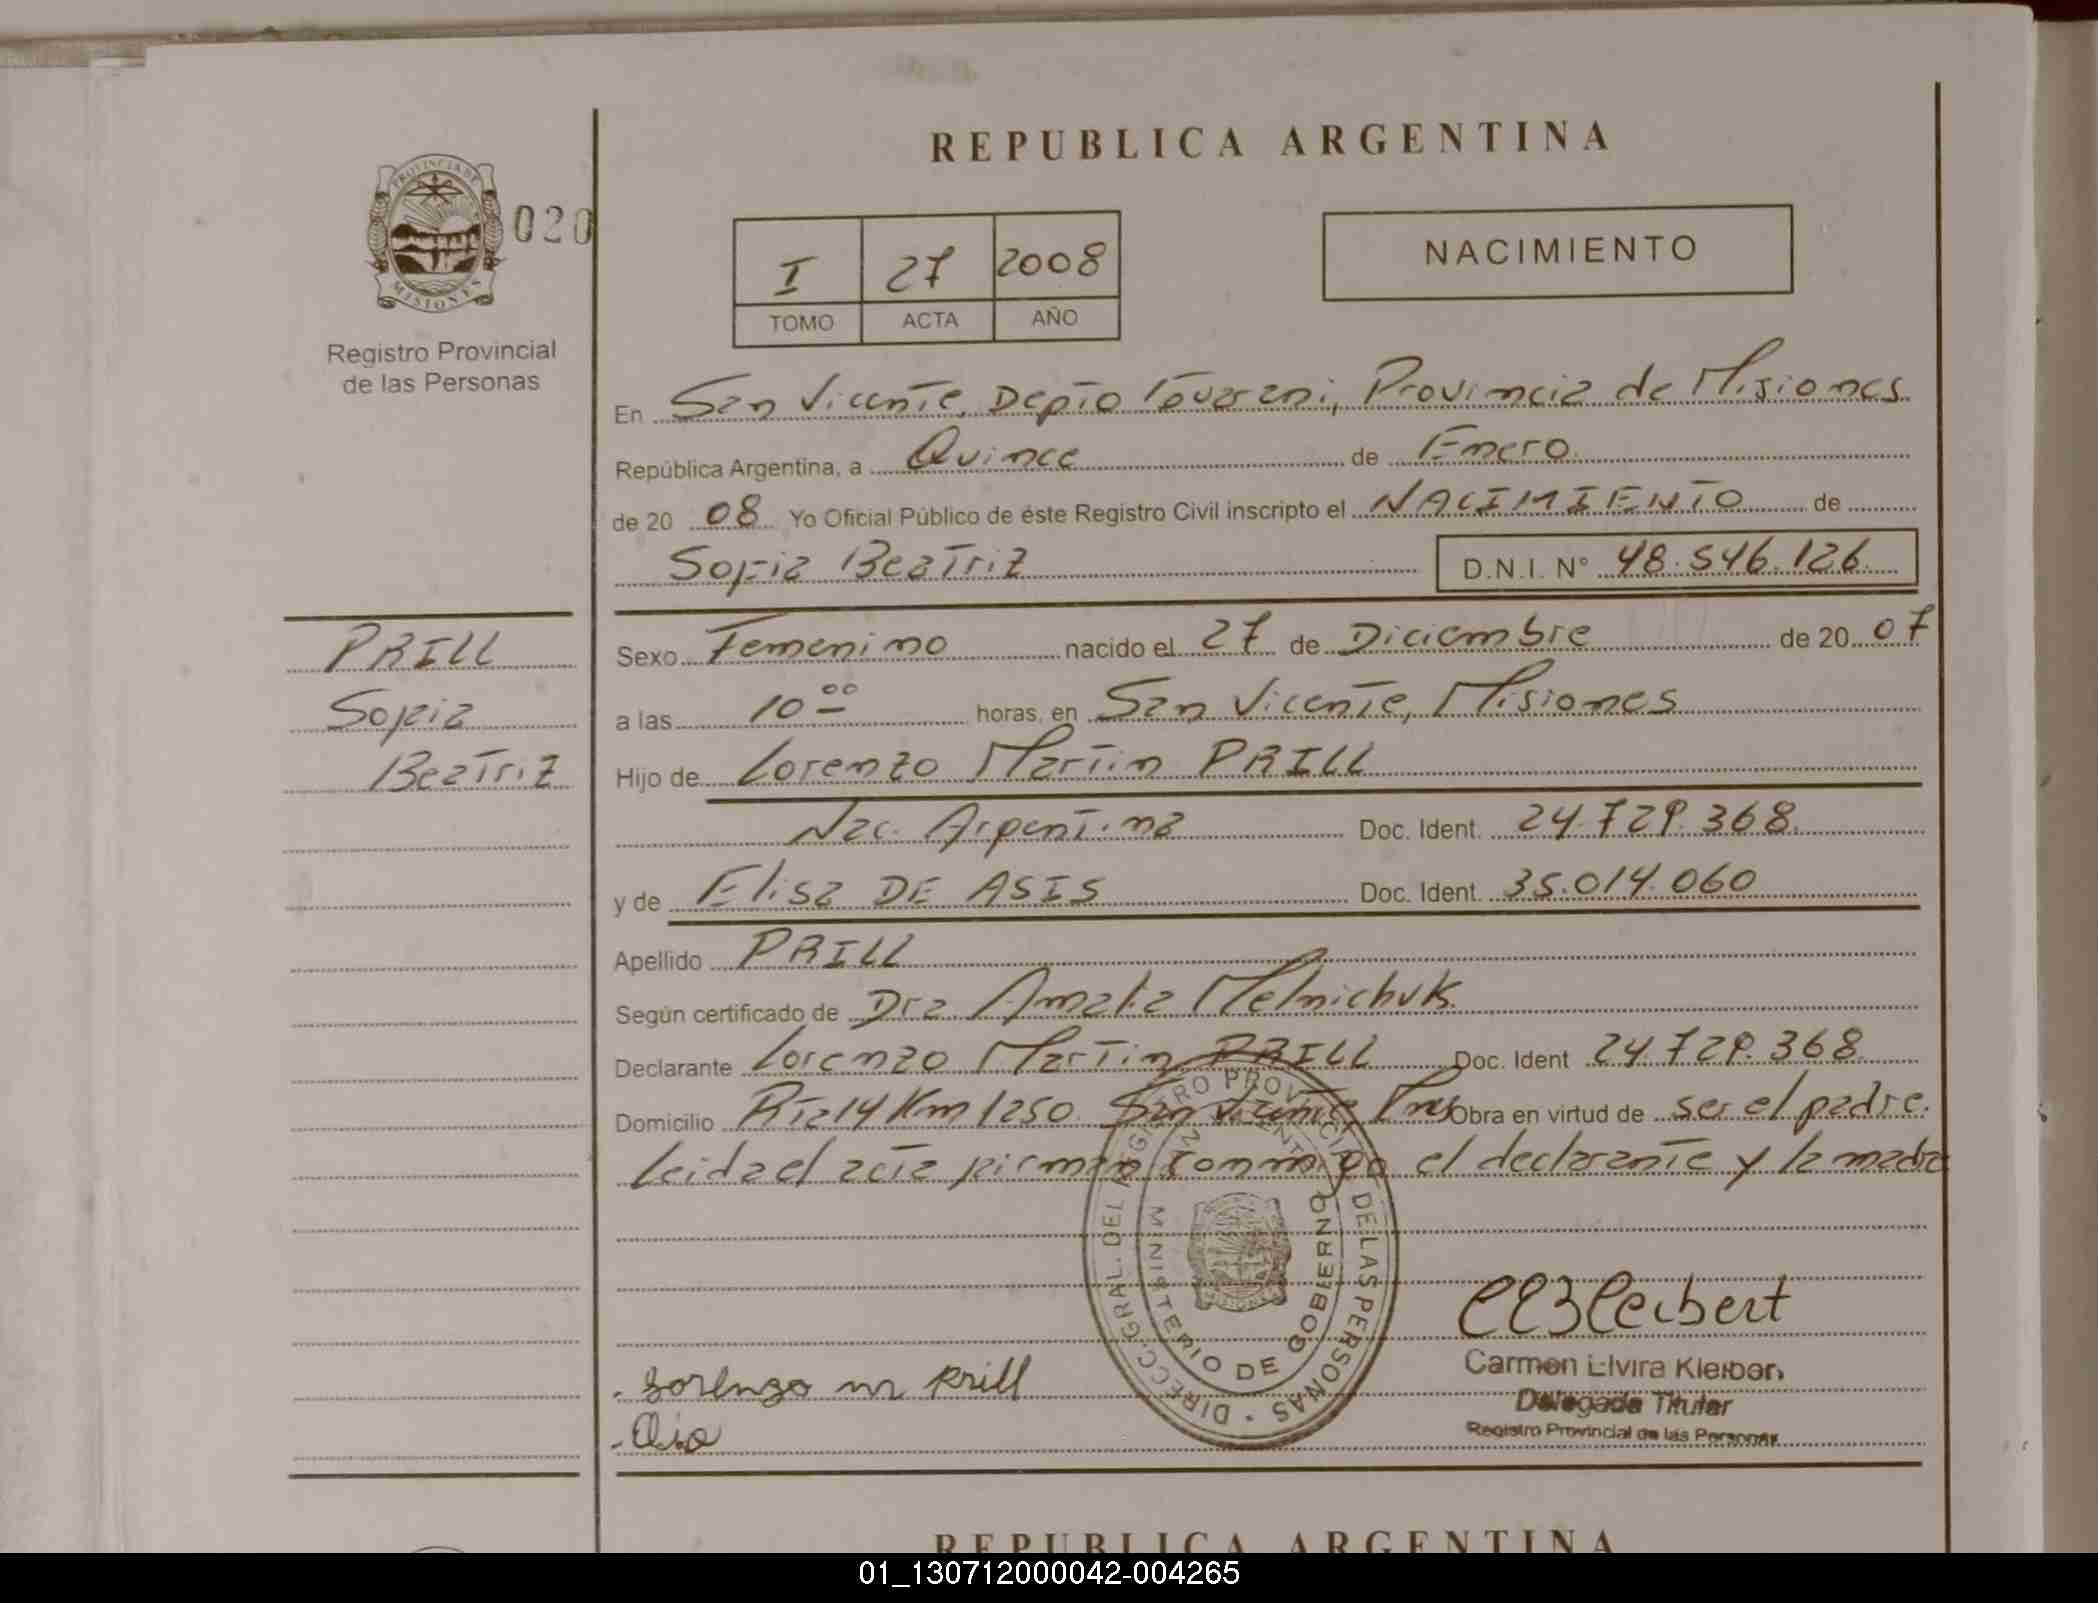 REPUBLICA ARGENTINA
PROVINCIA DE
MISIONES
020
Registro Provincial
de las Personas
I 27 2008
TOMO ACTA AÑO
NACIMIENTO
En San Vicente, Depto Guarani, Provincia de Misiones
República Argentina, a Quince de Enero
de 20 08 Yo Oficial Público de éste Registro Civil inscripto el NACIMIENTO de
Sofia Beatriz D.N.I. N° 48.546.126
PRILL
Sofia
Beatriz
Sexo Femenino nacido el 27 de Diciembre de 20 07
a las 10 00 horas, en San Vicente, Misiones
Hijo de Lorenzo Martin PRILL
Nac. Argentina Doc. Ident. 24.729.368
y de Elisa DE ASIS Doc. Ident. 35.014.060
Apellido PRILL
Según certificado de Dra Amalia Melnichuk
Declarante Lorenzo Martin PRILL Doc. Ident 24.729.368
Domicilio Rta 14 Km 1250 San Vicente Mnes Obra en virtud de ser el padre.
Leida el acta firman conmigo el declarante y la madre
DIRECC. GRAL. DEL REGISTRO PROVINCIAL DE LAS PERSONAS
MINISTERIO DE GOBIERNO
Carmen Elvira Kleiber
Delegada Titular
Registro Provincial de las Personas
Lorenzo m Prill
REPUBLICA ARGENTINA
01_130712000042-004265